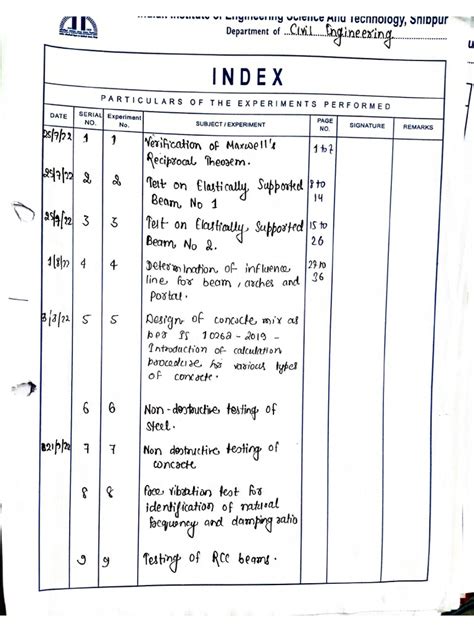 Indian Institute of Engineering Science And Technology, Shibpur
Department of Civil Engineering
INDEX
PARTICULARS OF THE EXPERIMENTS PERFORMED
DATE SERIAL NO. Experiment No. SUBJECT / EXPERIMENT PAGE NO. SIGNATURE REMARKS
25/7/22 1 1 Verification of Maxwell's 1 to 7
Reciprocal Theorem.
25/7/22 2 2 Test on Elastically Supported 8 to
Beam No 1 14
25/7/22 3 3 Test on Elastically Supported 15 to
Beam No 2. 26
1/8/22 4 4 Determination of influence 27 to
line for beam, arches and 36
Portal.
3/8/22 5 5 Design of concrete mix as
per IS 10262-2019 -
Introduction of calculation
procedure for various types
of concrete.
6 6 Non-destructive testing of
steel.
7 7 Non destructive testing of
concrete
8 8 vibration test for
identification of natural
frequency and damping ratio
9 9 Testing of RCC beams.